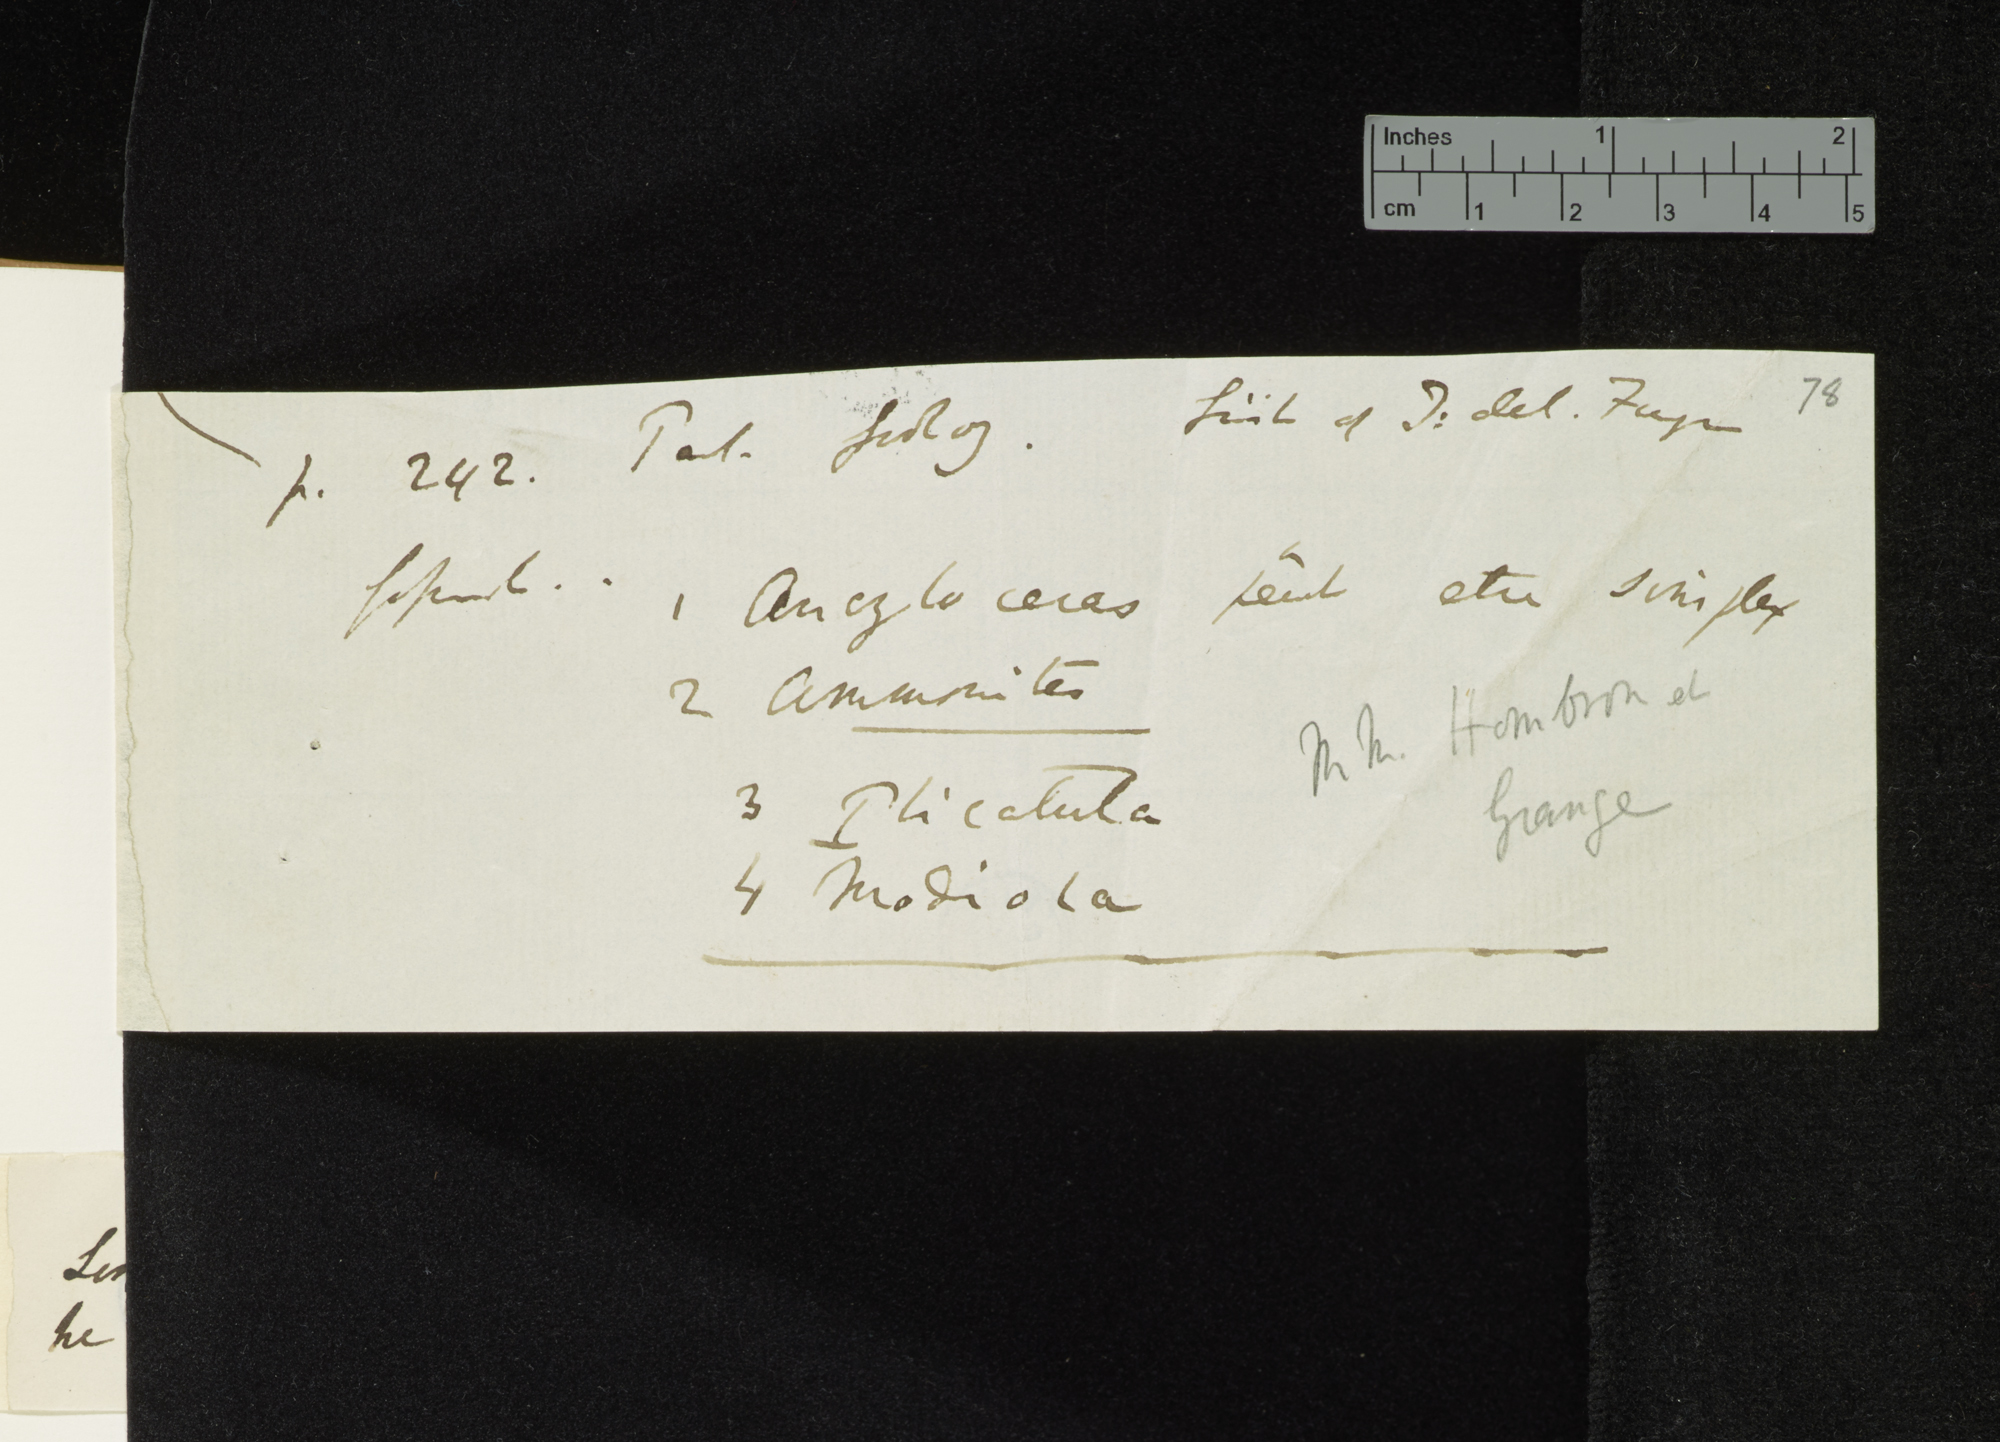 Inches 1 2
cm 1 2 3 4 5
78
p. 242. Part. Geolog. Strait of T. del. Fuego
1 Ancyloceras peût etre simplex
2 Ammonites
MM. Hombron et
Grange
3 Plicatula
4 Modiola
he